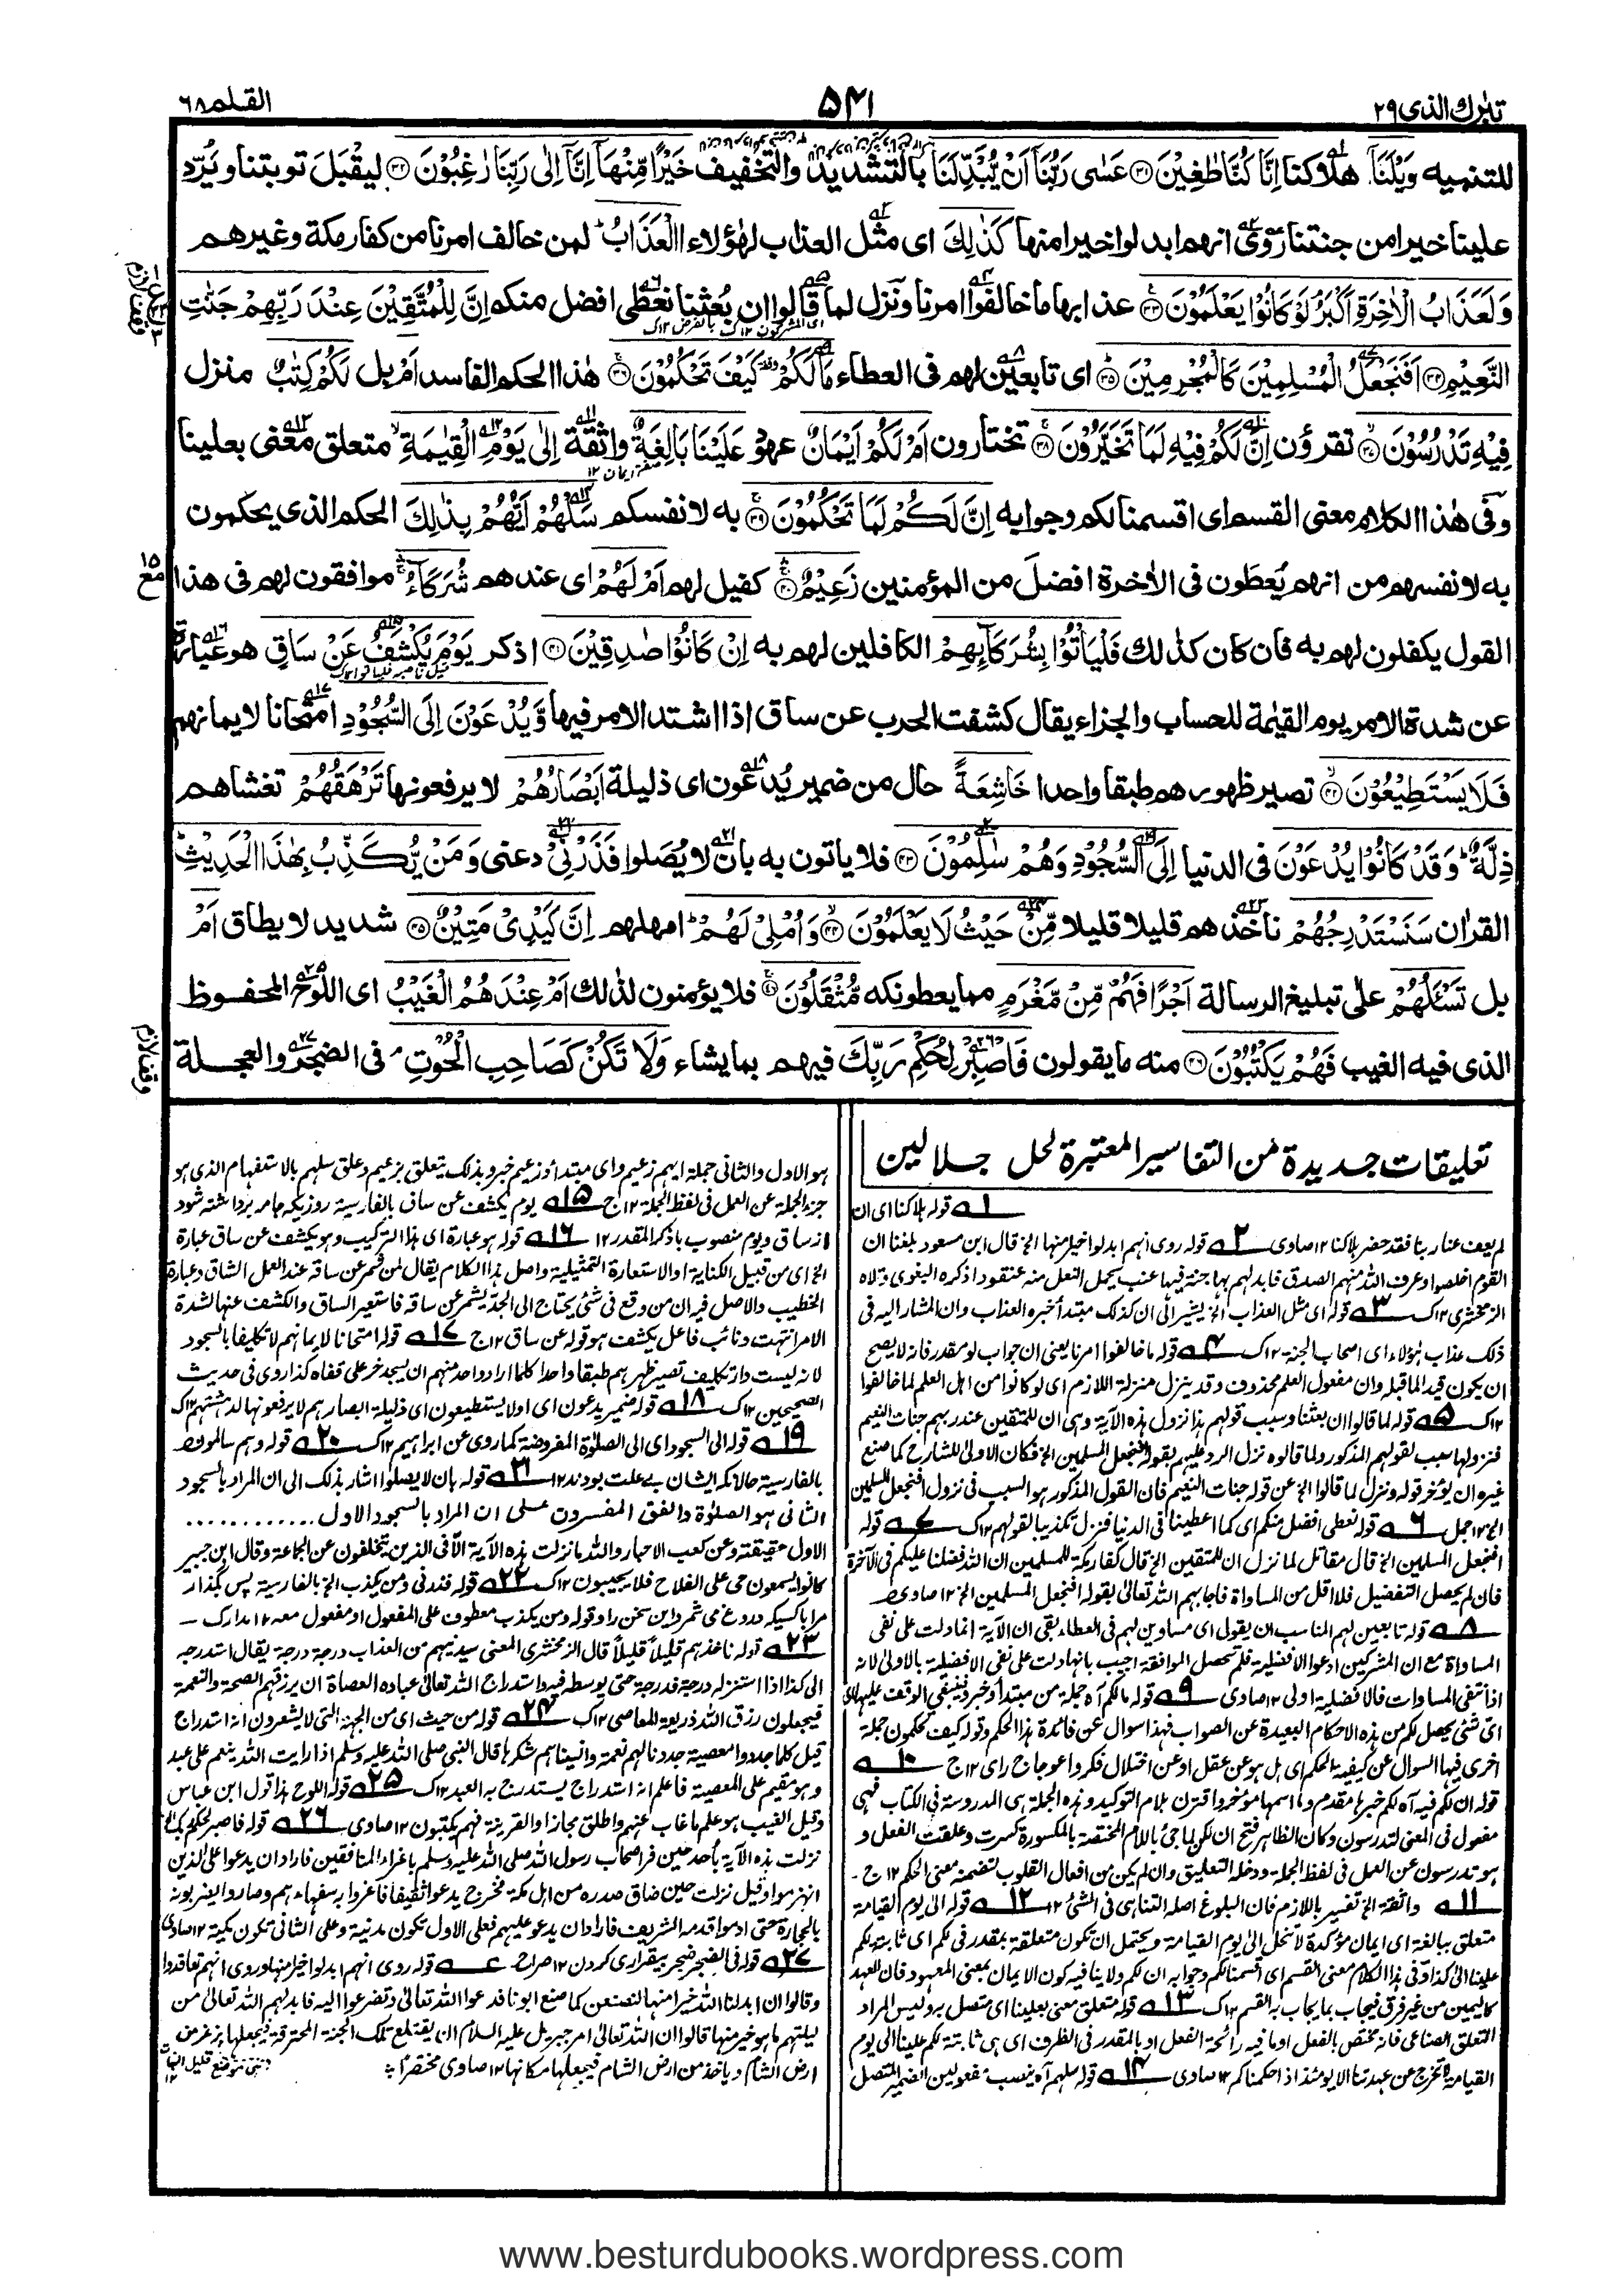 تبٰرك الذى ٢٩
٥٤١
القلم ٦٨
للتنبيه وَيْلَنَآ هلاكنا اِنَّا كُنَّا طٰغِيْنَ ۝٣١ عَسٰى رَبُّنَآ اَنْ يُّبْدِلَنَا بالتشديد والتخفيف خَيْرًا مِّنْهَآ اِنَّآ اِلٰى رَبِّنَا رٰغِبُوْنَ ۝٣٢ ليقبل توبتنا ويَرُدّ
علينا خيرا من جنتنا رُوِىَ انهم ابدلوا خيرا منها كَذٰلِكَ اى مثل العذاب لهٰؤلاء الْعَذَابُ ؕ لمن خالف امرنا من كفار مكة وغيرهم
وَلَعَذَابُ الْاٰخِرَةِ اَكْبَرُ ۘ لَوْ كَانُوْا يَعْلَمُوْنَ ۝٣٣ عذابها ما خالفوا امرنا ونزل لما قالوا ان بُعثنا نعطٰى افضل منكم اِنَّ لِلْمُتَّقِيْنَ عِنْدَ رَبِّهِمْ جَنّٰتِ
النَّعِيْمِ ۝٣٤ اَفَنَجْعَلُ الْمُسْلِمِيْنَ كَالْمُجْرِمِيْنَ ۝٣٥ اى تابعين لهم فى العطاء مَالَكُمْ كَيْفَ تَحْكُمُوْنَ ۝٣٦ هٰذا الحكم الفاسد اَمْ بل لَكُمْ كِتٰبٌ منزل
فِيْهِ تَدْرُسُوْنَ ۝٣٧ تقرؤن اِنَّ لَكُمْ فِيْهِ لَمَا تَخَيَّرُوْنَ ۝٣٨ تختارون اَمْ لَكُمْ اَيْمَانٌ عهود عَلَيْنَا بَالِغَةٌ واثقة اِلٰى يَوْمِ الْقِيٰمَةِ ۙ متعلق معنى بعلينا
وفى هٰذا الكلام معنى القسم اى اقسمنا لكم وجوابه اِنَّ لَكُمْ لَمَا تَحْكُمُوْنَ ۝٣٩ به لانفسكم سَلْهُمْ اَيُّهُمْ بِذٰلِكَ الحكم الذى يحكمون
به لانفسهم من انهم يُعطَون فى الاٰخرة افضلَ من المؤمنين زَعِيْمٌ ۝٤٠ كفيل لهم اَمْ لَهُمْ اى عندهم شُرَكَآءُ موافقون لهم فى هذا
القول يكفلون لهم به فان كان كذٰلك فَلْيَاْتُوْا بِشُرَكَآئِهِمْ الكافلين لهم به اِنْ كَانُوْا صٰدِقِيْنَ ۝٤١ اذكر يَوْمَ يُكْشَفُ عَنْ سَاقٍ هو عبارة
عن شدة الامر يوم القيٰمة للحساب والجزاء يقال كشفت الحرب عن ساق اذا اشتد الامر فيها وَّيُدْعَوْنَ اِلَى السُّجُوْدِ امتحانا لايمانهم
فَلَا يَسْتَطِيْعُوْنَ ۝٤٢ تصير ظهورهم طبقا واحدا خَاشِعَةً حال من ضمير يُدعون اى ذليلة اَبْصَارُهُمْ لا يرفعونها تَرْهَقُهُمْ تغشاهم
ذِلَّةٌ ؕ وَقَدْ كَانُوْا يُدْعَوْنَ فى الدنيا اِلَى السُّجُوْدِ وَهُمْ سٰلِمُوْنَ ۝٤٣ فلا ياتون به بان لا يُصَلوا فَذَرْنِىْ دعنى وَمَنْ يُّكَذِّبُ بِهٰذَا الْحَدِيْثِ ؕ
القراٰن سَنَسْتَدْرِجُهُمْ ناخذهم قليلا قليلا مِّنْ حَيْثُ لَا يَعْلَمُوْنَ ۝٤٤ وَاُمْلِىْ لَهُمْ ؕ امهلهم اِنَّ كَيْدِىْ مَتِيْنٌ ۝٤٥ شديد لا يطاق اَمْ
بل تَسْئَلُهُمْ على تبليغ الرسالة اَجْرًا فَهُمْ مِّنْ مَّغْرَمٍ مما يعطونكه مُّثْقَلُوْنَ ۝٤٦ فلا يؤمنون لذٰلك اَمْ عِنْدَهُمُ الْغَيْبُ اى اللوح المحفوظ
الذى فيه الغيب فَهُمْ يَكْتُبُوْنَ ۝٤٧ منه ما يقولون فَاصْبِرْ لِحُكْمِ رَبِّكَ فيهم بما يشاء وَلَا تَكُنْ كَصَاحِبِ الْحُوْتِ ۘ فى الضجر والعجلة
تعليقات جديدة من التفاسير المعتبرة لحل جلالين
١ قوله هلاكنا اى ان
لم يعف عنا ربنا فقد حضر هلاكنا ١٢ صاوى ٢ قوله روى انهم ابدلوا خيرا منها الخ قال ابن مسعود بلغنا ان
القوم اخلصوا وعرف الله منهم الصدق فابدلهم بها جنة فيها عنب يحمل البغل منه عنقودا ذكره البغوى
الزمخشرى ١٢ك ٣ قوله اى مثل العذاب الخ يشير الى ان كذلك مبتدأ خبره العذاب وان المشار اليه فى
ذلك عذاب هؤلاء اى اصحاب الجنة ١٢ك ٤ قوله ما خالفوا امرنا يعنى ان جواب لو مقدر فانه لا يصح
ان يكون قيدا لما قبله وان مفعول العلم محذوف وقد ينزل منزلة اللازم اى لو كانوا من اهل العلم لما خالفوا
١٢ك ٥ قوله لما قالوا ان بعثنا وسبب قولهم هذا نزول هذه الآية وهى ان للمتقين عند ربهم جنات النعيم
فنزولها سبب لقولهم المذكور ولما قالوه نزل الرد عليهم بقوله افنجعل المسلمين الخ فكان الاولى للشارح كما صنع
غيره ان يؤخر قوله ونزل لما قالوا الخ عن قوله جنات النعيم فان القول المذكور هو السبب فى نزول افنجعل المسلمين
الخ ١٢ جمل ٦ قوله نعطى افضل منكم اى كما اعطينا فى الدنيا فنزل تكذيبا لقولهم ١٢ك ٧ قوله
افنجعل المسلمين الخ قال مقاتل لما نزل ان للمتقين الخ قال كفار مكة للمسلمين ان الله فضلنا عليكم فى الآخرة
فان لم يحصل التفضيل فلا اقل من المساواة فاجابهم الله تعالى بقوله افنجعل المسلمين الخ ١٢ صاوى
٨ قوله تابعين لهم المناسب ان يقول اى مساوين لهم فى العطاء بقى ان الآية انما دلت على نفى
المساواة مع ان المشركين ادعوا الافضلية فلم تحصل الموافقة اجيب بانها دلت على نفى الافضلية بالاولى لانه
اذا انتفى المساوات فالافضلية اولى ١٢ صاوى ٩ قوله مالكم آه جملة من مبتدأ وخبر فينبغى الوقف عليها
اى شئ يحصل لكم من هذه الاحكام البعيدة عن الصواب فهذا سوال عن فائدة هذا الحكم وقوله كيف تحكمون جملة
اخرى فيها السوال عن كيفية الحكم اى هل هو عن عقل او عن اختلال فكر واعوجاج راى ١٢ج ١٠
قوله ان لكم فيه آه لكم خبرها مقدم وما اسمها مؤخر واقترن بلام التوكيد وهذه الجملة هى المدروسة فى الكتاب فهى
مفعول فى المعنى لتدرسون وكان الظاهر فتح ان لكن لما جئ باللام المختصة بالمكسورة كسرت وعلقت الفعل و
هو تدرسون عن العمل فى لفظ الجملة ودخله التعليق وان لم يكن من افعال القلوب لتضمنه معنى الحكم ١٢ ج
١١ واثقة الخ تفسير باللازم فان البلوغ اصله التناهى فى الشئ ١٢ ١٢ قوله الى يوم القيامة
متعلق ببالغة اى ايمان مؤكدة لا تنحل الى يوم القيامة ويحتمل ان تكون متعلقة بمقدر فى لكم اى ثابتة لكم
علينا الى كذا وفى هذا الكلام معنى القسم اى اقسمنا لكم وجوابه ان لكم ولا ينافيه كون الايمان بمعنى المعهود فان العهد
كاليمين من غير فرق فيجاب بما يجاب به القسم ١٢ك ١٣ قوله متعلق معنى بعلينا اى متصل به وليس المراد
التعلق الصناعى فانه مختص بالفعل او ما فيه رائحة الفعل او بالمقدر فى الظرف اى هى ثابتة لكم علينا الى يوم
القيامة لا تخرج عن عهدتنا الا يومئذ اذا حكمناكم ١٢ صاوى ١٤ قوله سلهم آه ينصب مفعولين الضمير المتصل
هو الاول والثانى جملة ايهم زعيم واى مبتدأ وزعيم خبر وبذلك يتعلق بزعيم وعلق سلهم بالاستفهام الذى هو
جزء الجملة عن العمل فى لفظ الجملة ١٢ج ١٥ يوم يكشف عن ساق بالفارسية روزيكه جامه برداشته شود
از ساق ويوم منصوب باذكر المقدر ١٢ ١٦ قوله هو عبارة اى هذا التركيب وهو يكشف عن ساق عبارة
الخ اى من قبيل الكناية او الاستعارة التمثيلية واصل هذا الكلام يقال لمن شمر عن ساقه عند العمل الشاق وعبارة
الخطيب والاصل فيه ان من وقع فى شئ يحتاج الى الجد يشمر عن ساقه فاستعير الساق والكشف عنها لشدة
الامر انتهت ونائب فاعل يكشف هو قوله عن ساق ١٢ج ١٧ قوله امتحانا لايمانهم لا تكليفا بالسجود
لانه ليست دار تكليف تصير ظهرهم طبقا واحدا كلما اراد واحد منهم ان يسجد خر على قفاه كذا روى فى حديث
الصحيحين ١٢ك ١٨ قوله ضمير يدعون اى او لا يستطيعون اى ذليلة ابصارهم لا يرفعونها لدهشتهم ١٢ك
١٩ قوله الى السجود اى الى الصلوٰة المفروضة كما روى عن ابراهيم ١٢ك ٢٠ قوله وهم سالمون
بالفارسية حالانكه ايشان بے علت بودند ١٢ ٢١ قوله بان لا يصلوا اشار بذلك الى ان المراد بالسجود
الثانى هو الصلوٰة واتفق المفسرون على ان المراد بالسجود الاول ............
الاول حقيقته وعن كعب الاحبار والله ما نزلت هذه الآية الا فى الذين يتخلفون عن الجماعة وقال ابن جبير
كانوا يسمعون حى على الفلاح فلا يجيبون ١٢ك ٢٢ قوله فذرنى ومن يكذب الخ بالفارسية پس بگذار
مرا باكسيكه دروغ مى شمرد اين سخن را وقوله ومن يكذب معطوف على المفعول او مفعول معه ١٢ مدارك
٢٣ قوله ناخذهم قليلاً قليلاً قال الزمخشرى المعنى سيدنيهم من العذاب درجة درجة يقال استدرجه
الى كذا اذا استنزله درجة فدرجة حتى يورطه فيه واستدراج الله تعالى عباده العصاة ان يرزقهم الصحة والنعمة
فيجعلون رزق الله ذريعة للمعاصى ١٢ك ٢٤ قوله من حيث اى من الجهة التى لا يشعرون انه استدراج
قيل كلما جددوا معصية جددنا لهم نعمة وانسيناهم شكرها قال النبى صلى الله عليه وسلم اذا رايت الله ينعم على عبد
وهو مقيم على المعصية فاعلم انه استدراج يستدرج به العبد ١٢ك ٢٥ قوله اللوح هذا قول ابن عباس
وقيل الغيب هو علم ما غاب عنهم واطلق مجازا والقرينة فهم يكتبون ١٢ صاوى ٢٦ قوله فاصبر لحكم ربك الخ
نزلت هذه الآية باُحد حين فر اصحاب رسول الله صلى الله عليه وسلم باغراء المنافقين فاراد ان يدعوا على الذين
انهزموا وقيل نزلت حين ضاق صدره من اهل مكة فخرج يدعو ثقيفا فاغروا به سفهاءهم وصاروا يضربونه
بالحجارة حتى ادموا قدمه الشريف فاراد ان يدعو عليهم فعلى الاول تكون مدنية وعلى الثانى تكون مكية ١٢ صاوى
٢٧ قوله فى الضجر ضجر بيقرارى كردن ١٢ صراح ؏ قوله روى انهم ابدلوا خيرا منها وروى انهم تعاقدوا
وقالوا ان ابدلنا الله خيرا منها لنصنعن كما صنع ابونا فدعوا الله تعالى وتضرعوا اليه فابدلهم الله تعالى من
ليلتهم ما هو خير منها قالوا ان الله تعالى امر جبريل عليه السلام ان يقتلع تلك الجنة المحترقة فيجعلها بزغر من
ارض الشام وياخذ من ارض الشام فيجعلها مكانها ١٢ صاوى مختصراً
www.besturdubooks.wordpress.com